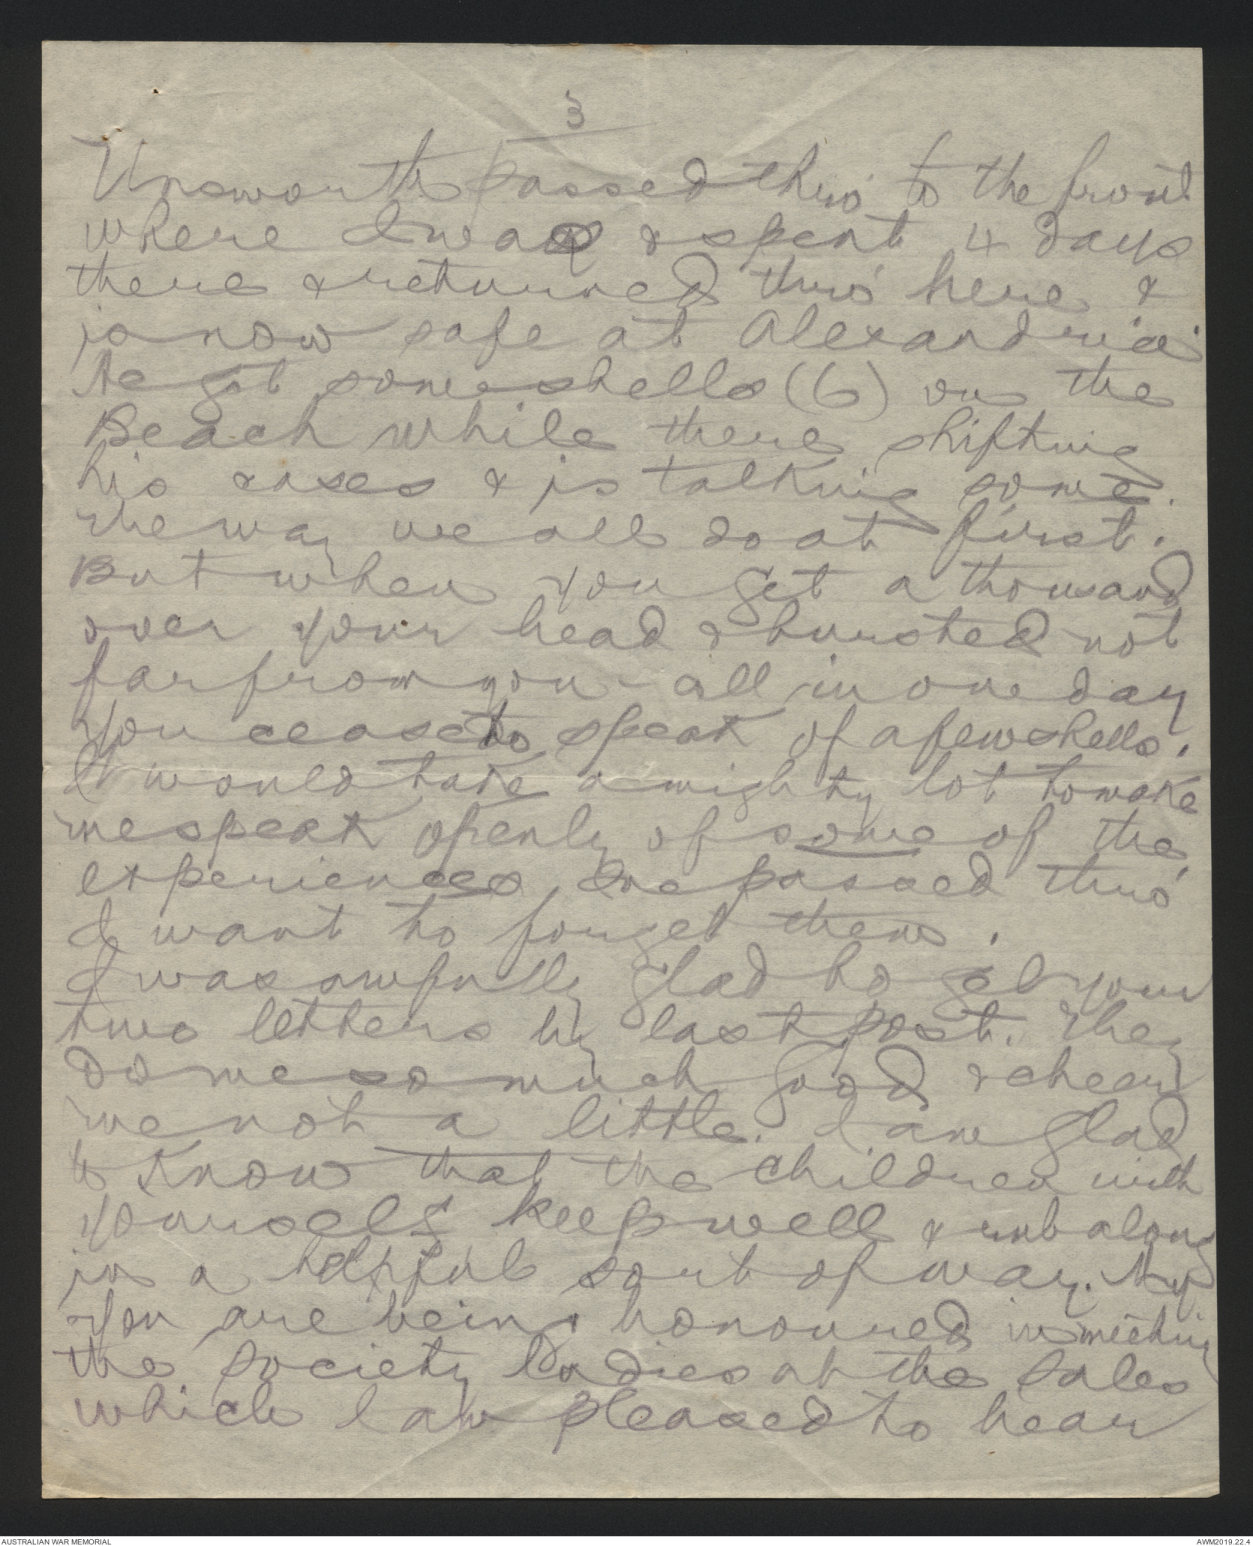 3
Unsworth passed thro' to the front
where I was & spent 4 days
there & returned thro' here &
is now safe at Alexandria.
He got some shells (6) on the
Beach while there shifting
his cases & is talking some.
The way we all do at first.
But when you get a thousand
over your head & bursted not
far from you - all in one day
you cease to speak of a few shells.
It would take a mighty lot to make
me speak openly of some of the
experiences I've passed thro'
I want to forget them.
I was awfully glad to get your
two letters by last post. They
do me so much good & cheer
me not a little. I am glad
to know that the children with
yourself keep well & rub along
in a helpful sort of way. My
you are being honoured in meeting
the society ladies at the sales
which I am pleased to hear
AUSTRALIAN WAR MEMORIAL
AWM2019.22.4